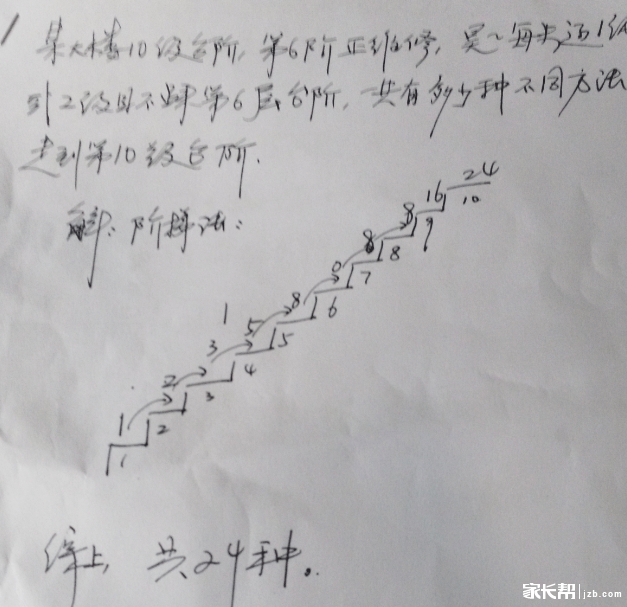 1
某大楼10级台阶,第6阶正维修,吴~每步迈1级
或2级且不踩第6层台阶,一共有多少种不同方法
走到第10级台阶.
解:阶梯法:
24
16 10
8 9
8 8
0 7
8 6
1
5 5
3 4
2 3
1 2
1
综上,共24种。
家长帮 jzb.com